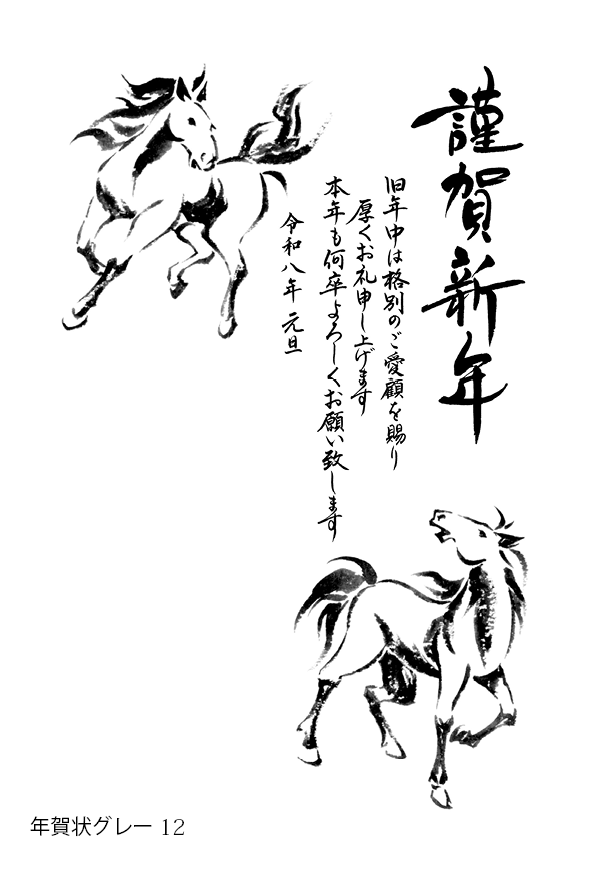 謹賀新年
旧年中は格別のご愛顧を賜り
厚くお礼申し上げます
本年も何卒よろしくお願い致します
令和八年 元旦
年賀状グレー 12